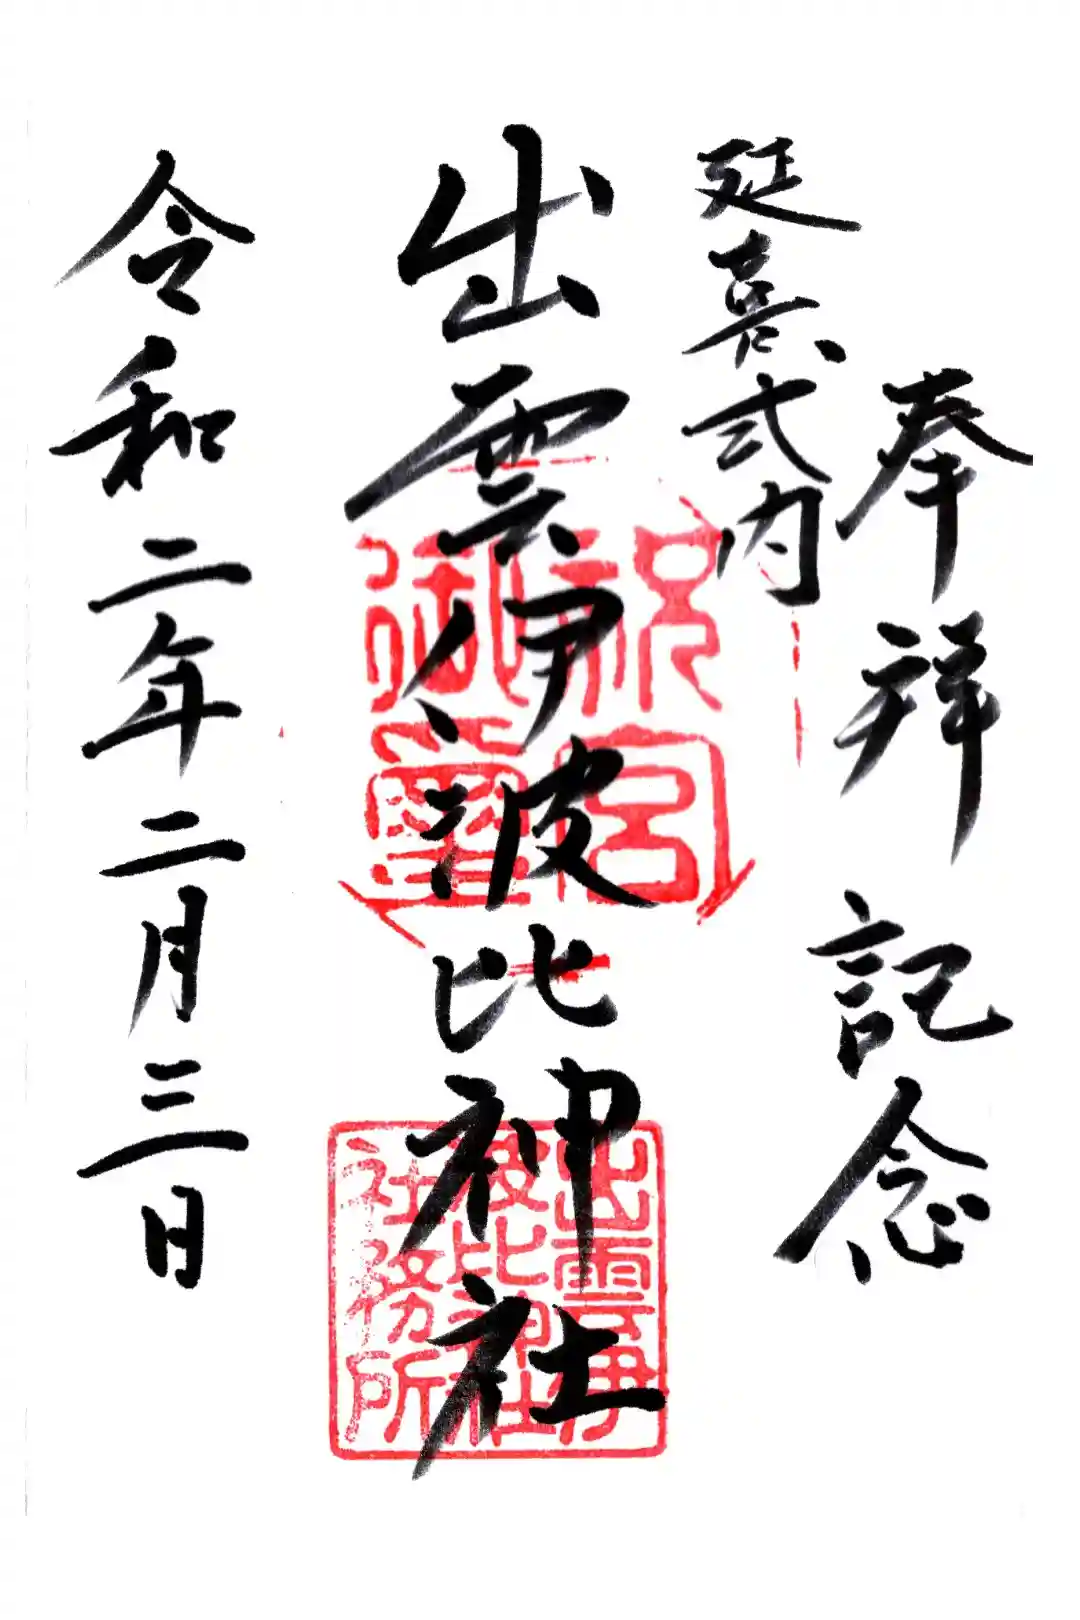 奉拝 記念
延喜式内
出雲伊波比神社
令和二年二月三日
出雲伊
波比神社
社務所